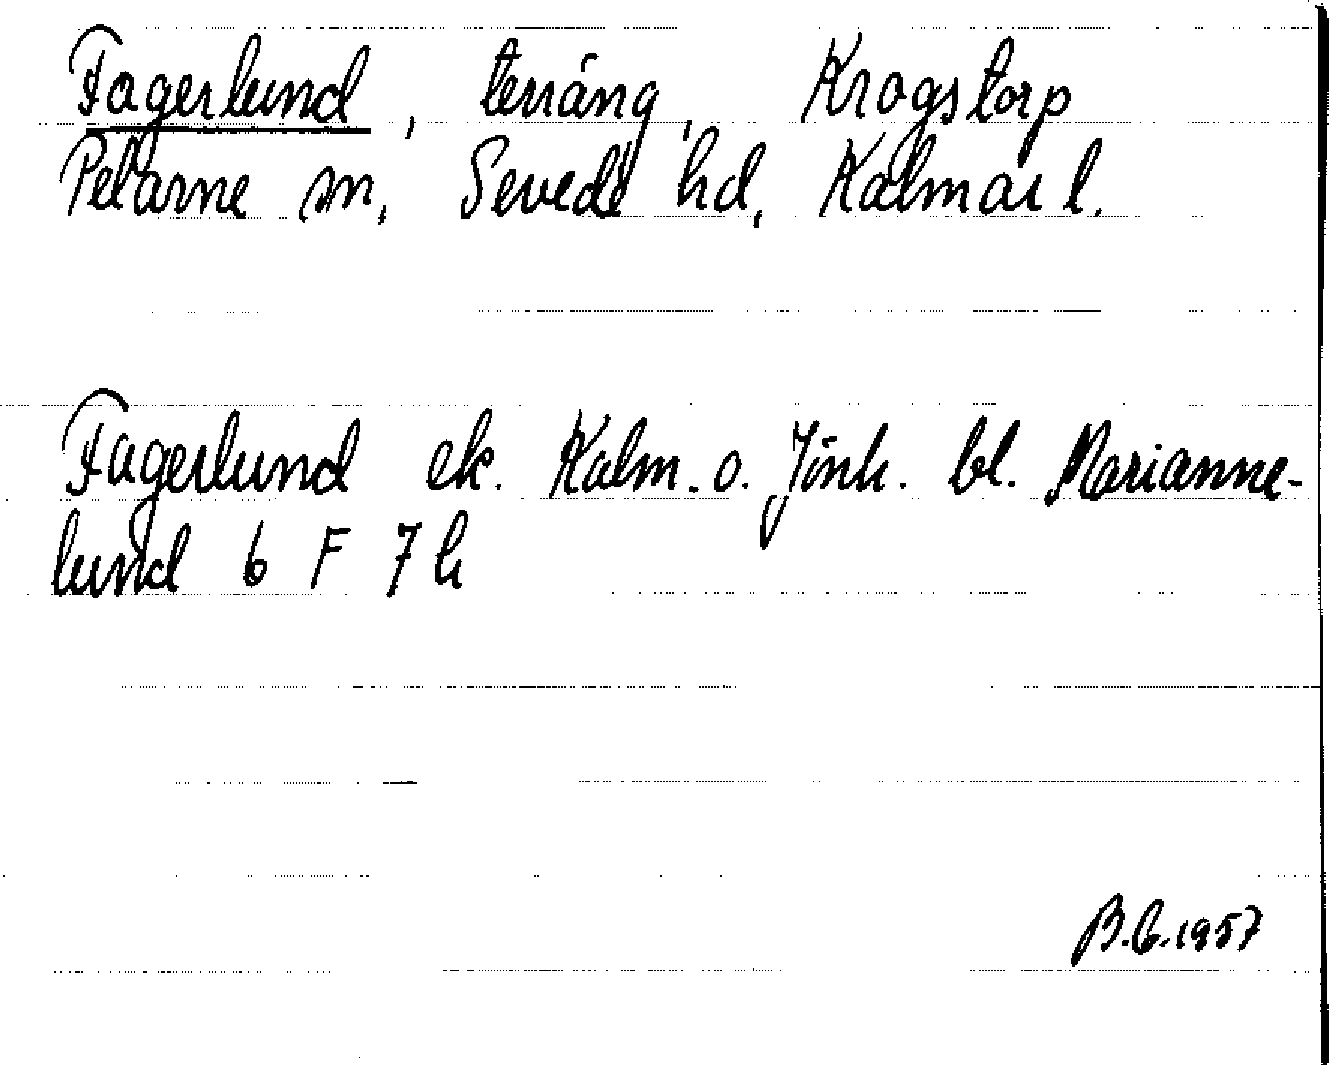 Fagerlund, terräng, Krogstorp
Pelarne sn, Sevede hd, Kalmar l.
Fagerlund ek. Kalm. o. Jönk. bl. Marianne-
lund 6 F 7 h
B.G. 1957